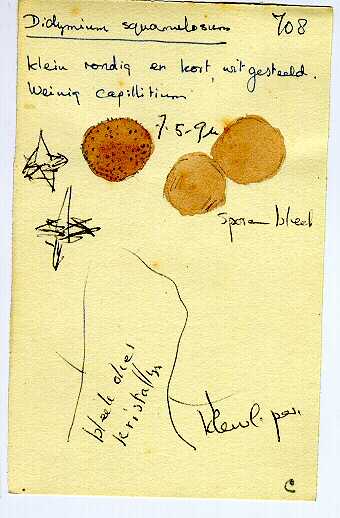 Didymium squamulosum 708
klein rondig en kort, wit gesteeld.
Weinig capillitium
7.5-9µ
Sporen bleek
kristallen
C